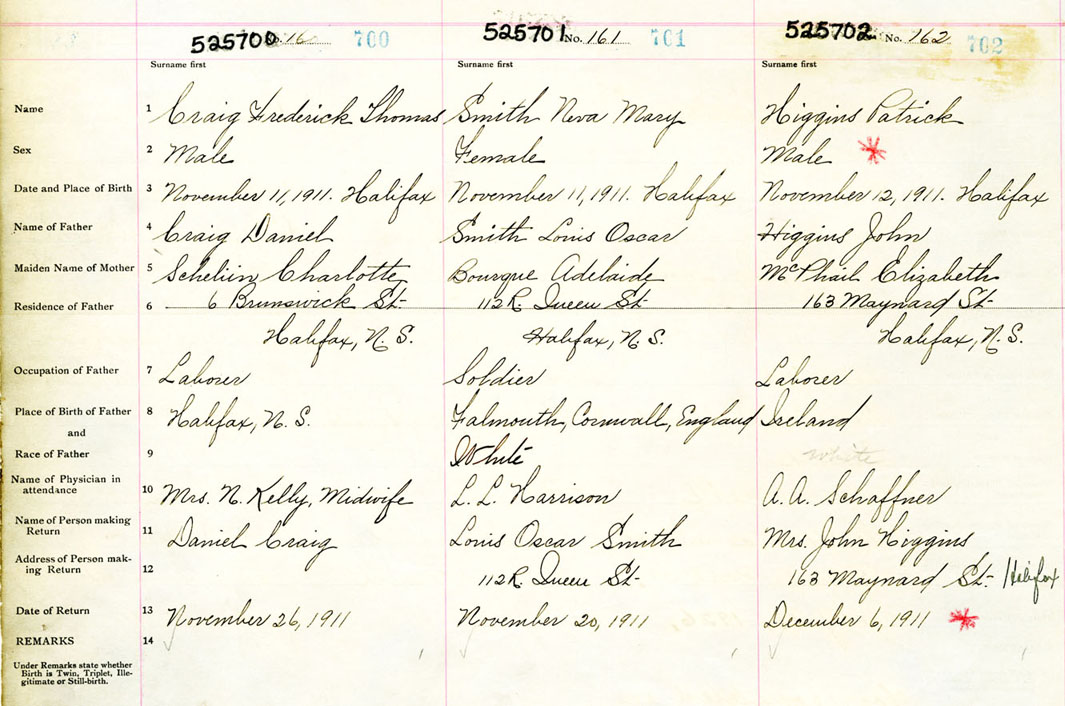 525700 No. 16 700 525701 No. 161 701 525702 No. 162 702
Surname first Surname first Surname first
Name 1 Craig Frederick Thomas Smith Neva Mary Higgins Patrick
Sex 2 Male Female Male
Date and Place of Birth 3 November 11, 1911. Halifax November 11, 1911. Halifax November 12, 1911. Halifax
Name of Father 4 Craig Daniel Smith Louis Oscar Higgins John
Maiden Name of Mother 5 Charlotte Bourque Adelaide McPhail Elizabeth
Residence of Father 6 6 Brunswick St. 112 R. Queen St. 163 Maynard St.
Halifax, N. S. Halifax, N. S. Halifax, N. S.
Occupation of Father 7 Laborer Soldier Laborer
Place of Birth of Father 8 Halifax, N. S. Falmouth, Cornwall, England Ireland
and
Race of Father 9 White White
Name of Physician in
attendance 10 Mrs. N. Kelly, Midwife L. L. Harrison A. A. Schaffner
Name of Person making
Return 11 Daniel Craig Louis Oscar Smith Mrs. John Higgins
Address of Person mak-
ing Return 12 112 R. Queen St. 163 Maynard St. Halifax
Date of Return 13 November 26, 1911 November 20, 1911 December 6, 1911
REMARKS 14
Under Remarks state whether
Birth is Twin, Triplet, Ille-
gitimate or Still-birth.